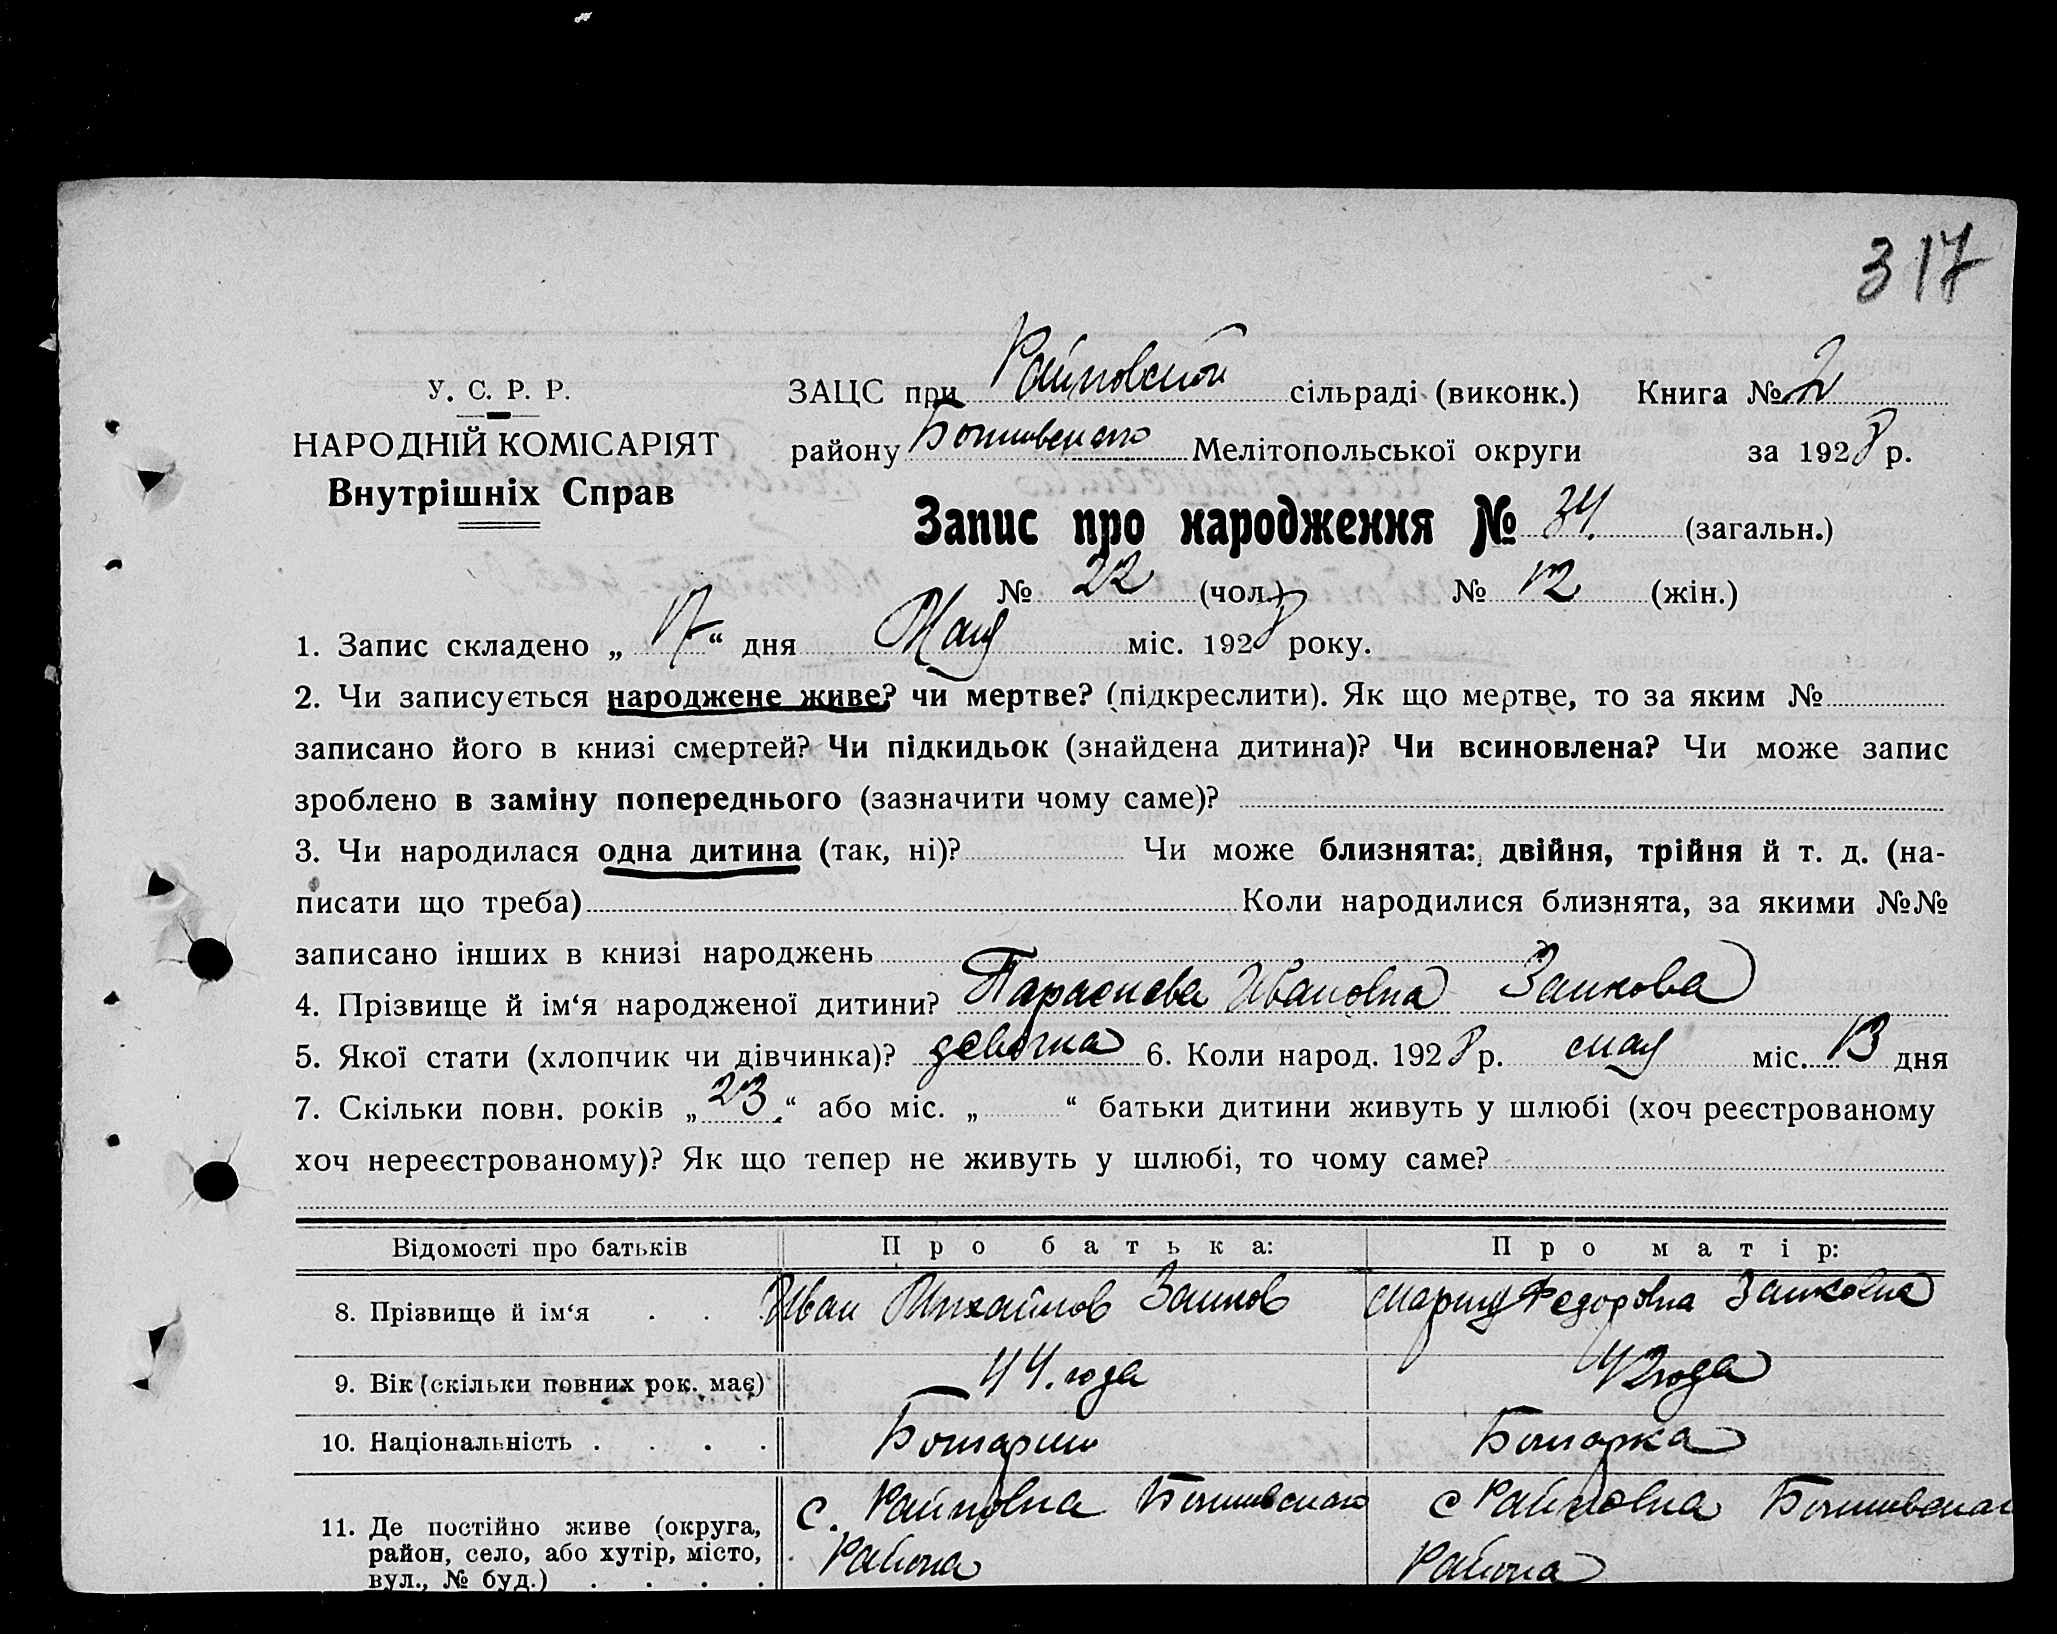 317
У. С. Р. Р.
НАРОДНІЙ КОМІСАРІЯТ
Внутрішніх Справ
ЗАЦС при Райновской сільраді (виконк.) Книга № 2
району Мелітопольської округи за 1928 р.
Запис про народження № 34. (загальн.)
№ 22 (чол.) № 12 (жін.)
1. Запис складено „ 17 “ дня Мая міс. 1928 року.
2. Чи записується народжене живе? чи мертве? (підкреслити). Як що мертве, то за яким №
записано його в книзі смертей? Чи підкидьок (знайдена дитина)? Чи всиновлена? Чи може запис
зроблено в заміну попереднього (зазначити чому саме)?
3. Чи народилася одна дитина (так, ні)? Чи може близнята: двійня, трійня й т. д. (на-
писати що треба) Коли народилися близнята, за якими №№
записано інших в книзі народжень
4. Прізвище й ім‘я народженої дитини? Параснева Ивановна Заикова
5. Якої стати (хлопчик чи дівчинка)? девочка 6. Коли народ. 1928 р. мая міс. 13 дня
7. Скільки повн. років „ 23 “ або міс. „ “ батьки дитини живуть у шлюбі (хоч реєстрованому
хоч нереєстрованому)? Як що тепер не живуть у шлюбі, то чому саме?
Відомості про батьків Про батька: Про матір:
8. Прізвище й ім‘я . . . Иван Михайлов Заиков Мария Федоровна
9. Вік (скільки повних рок. має) 44. года 42 года
10. Національність . . . . Болгарин Болгарка
11. Де постійно живе (округа,
район, село, або хутір, місто,
вул., № буд.) . . . .
с. Райновка
Района
с Райновка
Района